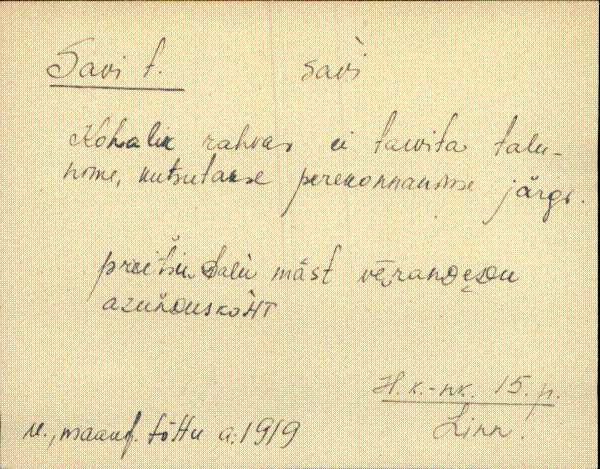 Savi t. savì
Kohalik rahvas ei tarvita talu-
nime, kutsutakse perekonnanime järgi.
preitsu talu mäst vērandesou
azundouskòHT
H.k.-nk. 15. p.
u., maauf. tõttu a. 1919 Linn.